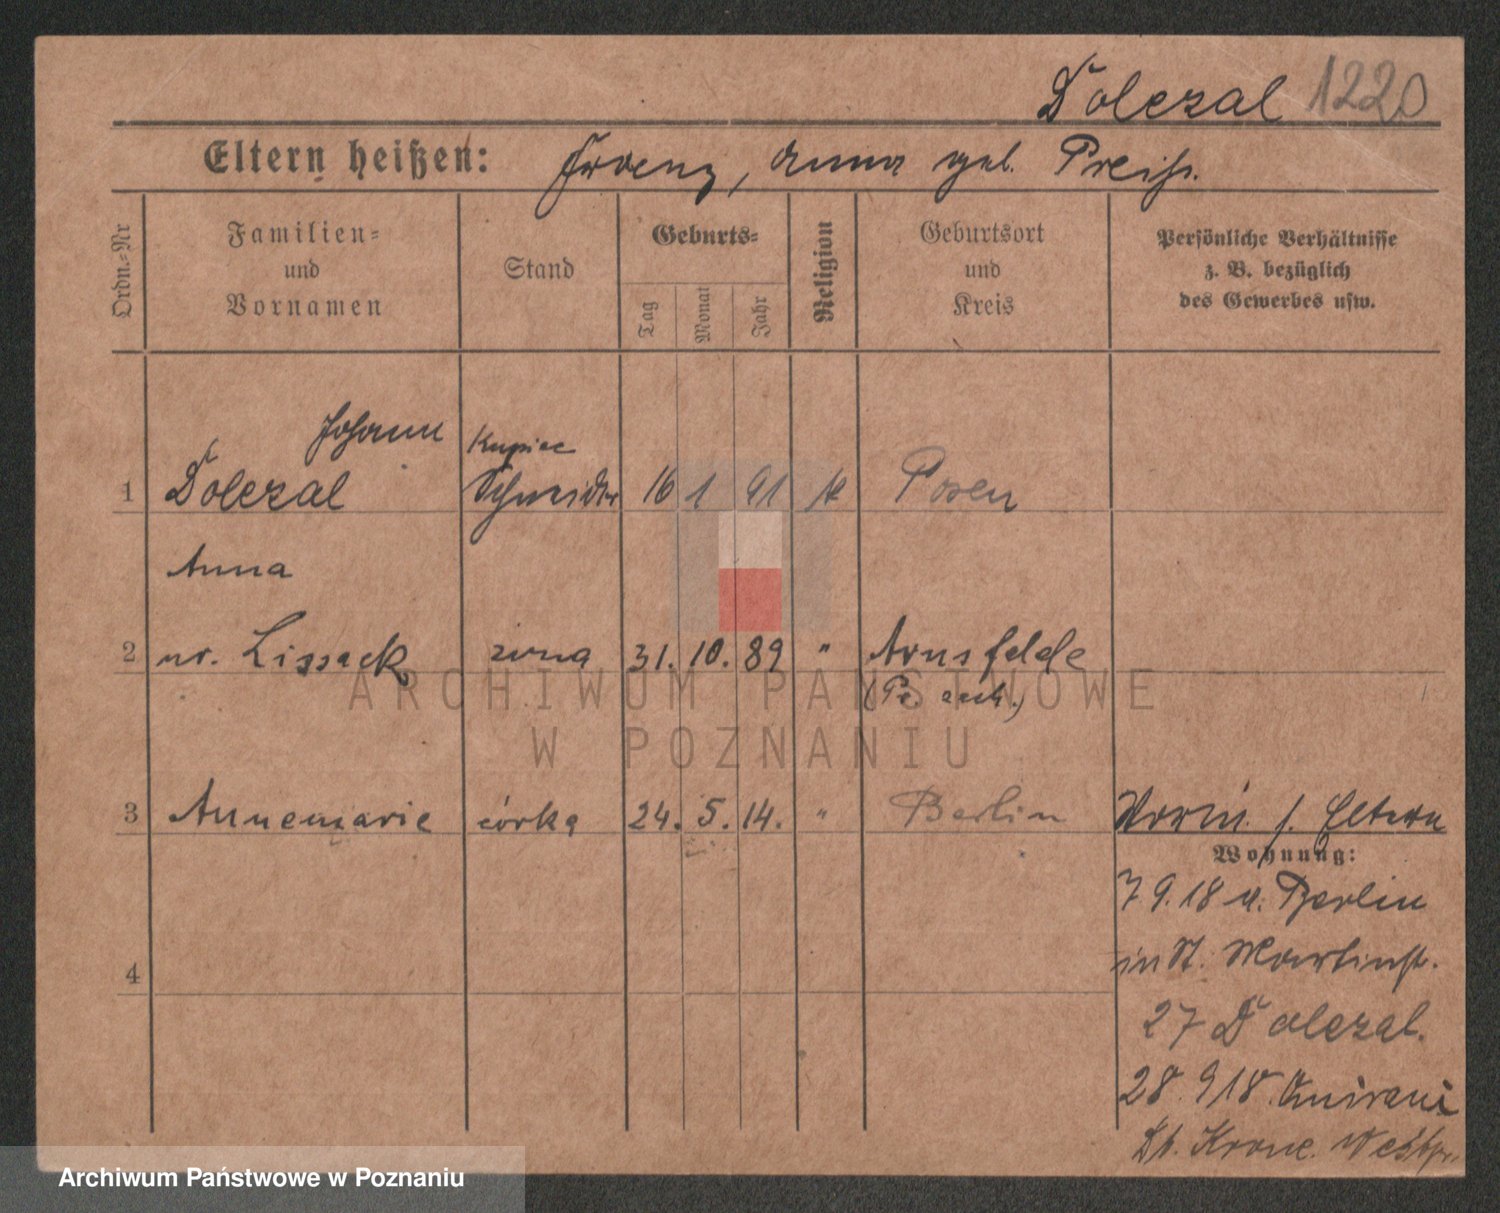 Dolezal 1220
Eltern heißen: Franz, Anna geb. Preiß.
Ordn.-Nr
Familien-
und
Vornamen
Stand
Geburts-
Tag
Monat
Jahr
Religion
Geburtsort
und
Kreis
Persönliche Verhältnisse
z. B. bezüglich
des Gewerbes usw.
Johann Kupiec
1 Dolezal Schneider 16 1 91 K Posen
Anna
2 ur. Lissack żona 31. 10. 89 " Arnsfelde
3 Annemarie córka 24. 5. 14. " Berlin
Eltern
Wohnung:
7 9. 18 v. Berlin
in St. Martinstr.
27 Dolezal.
4
28. 9 18
Dt. Krone. Westpr.
ARCHIWUM PAŃSTWOWE
W POZNANIU
Archiwum Państwowe w Poznaniu